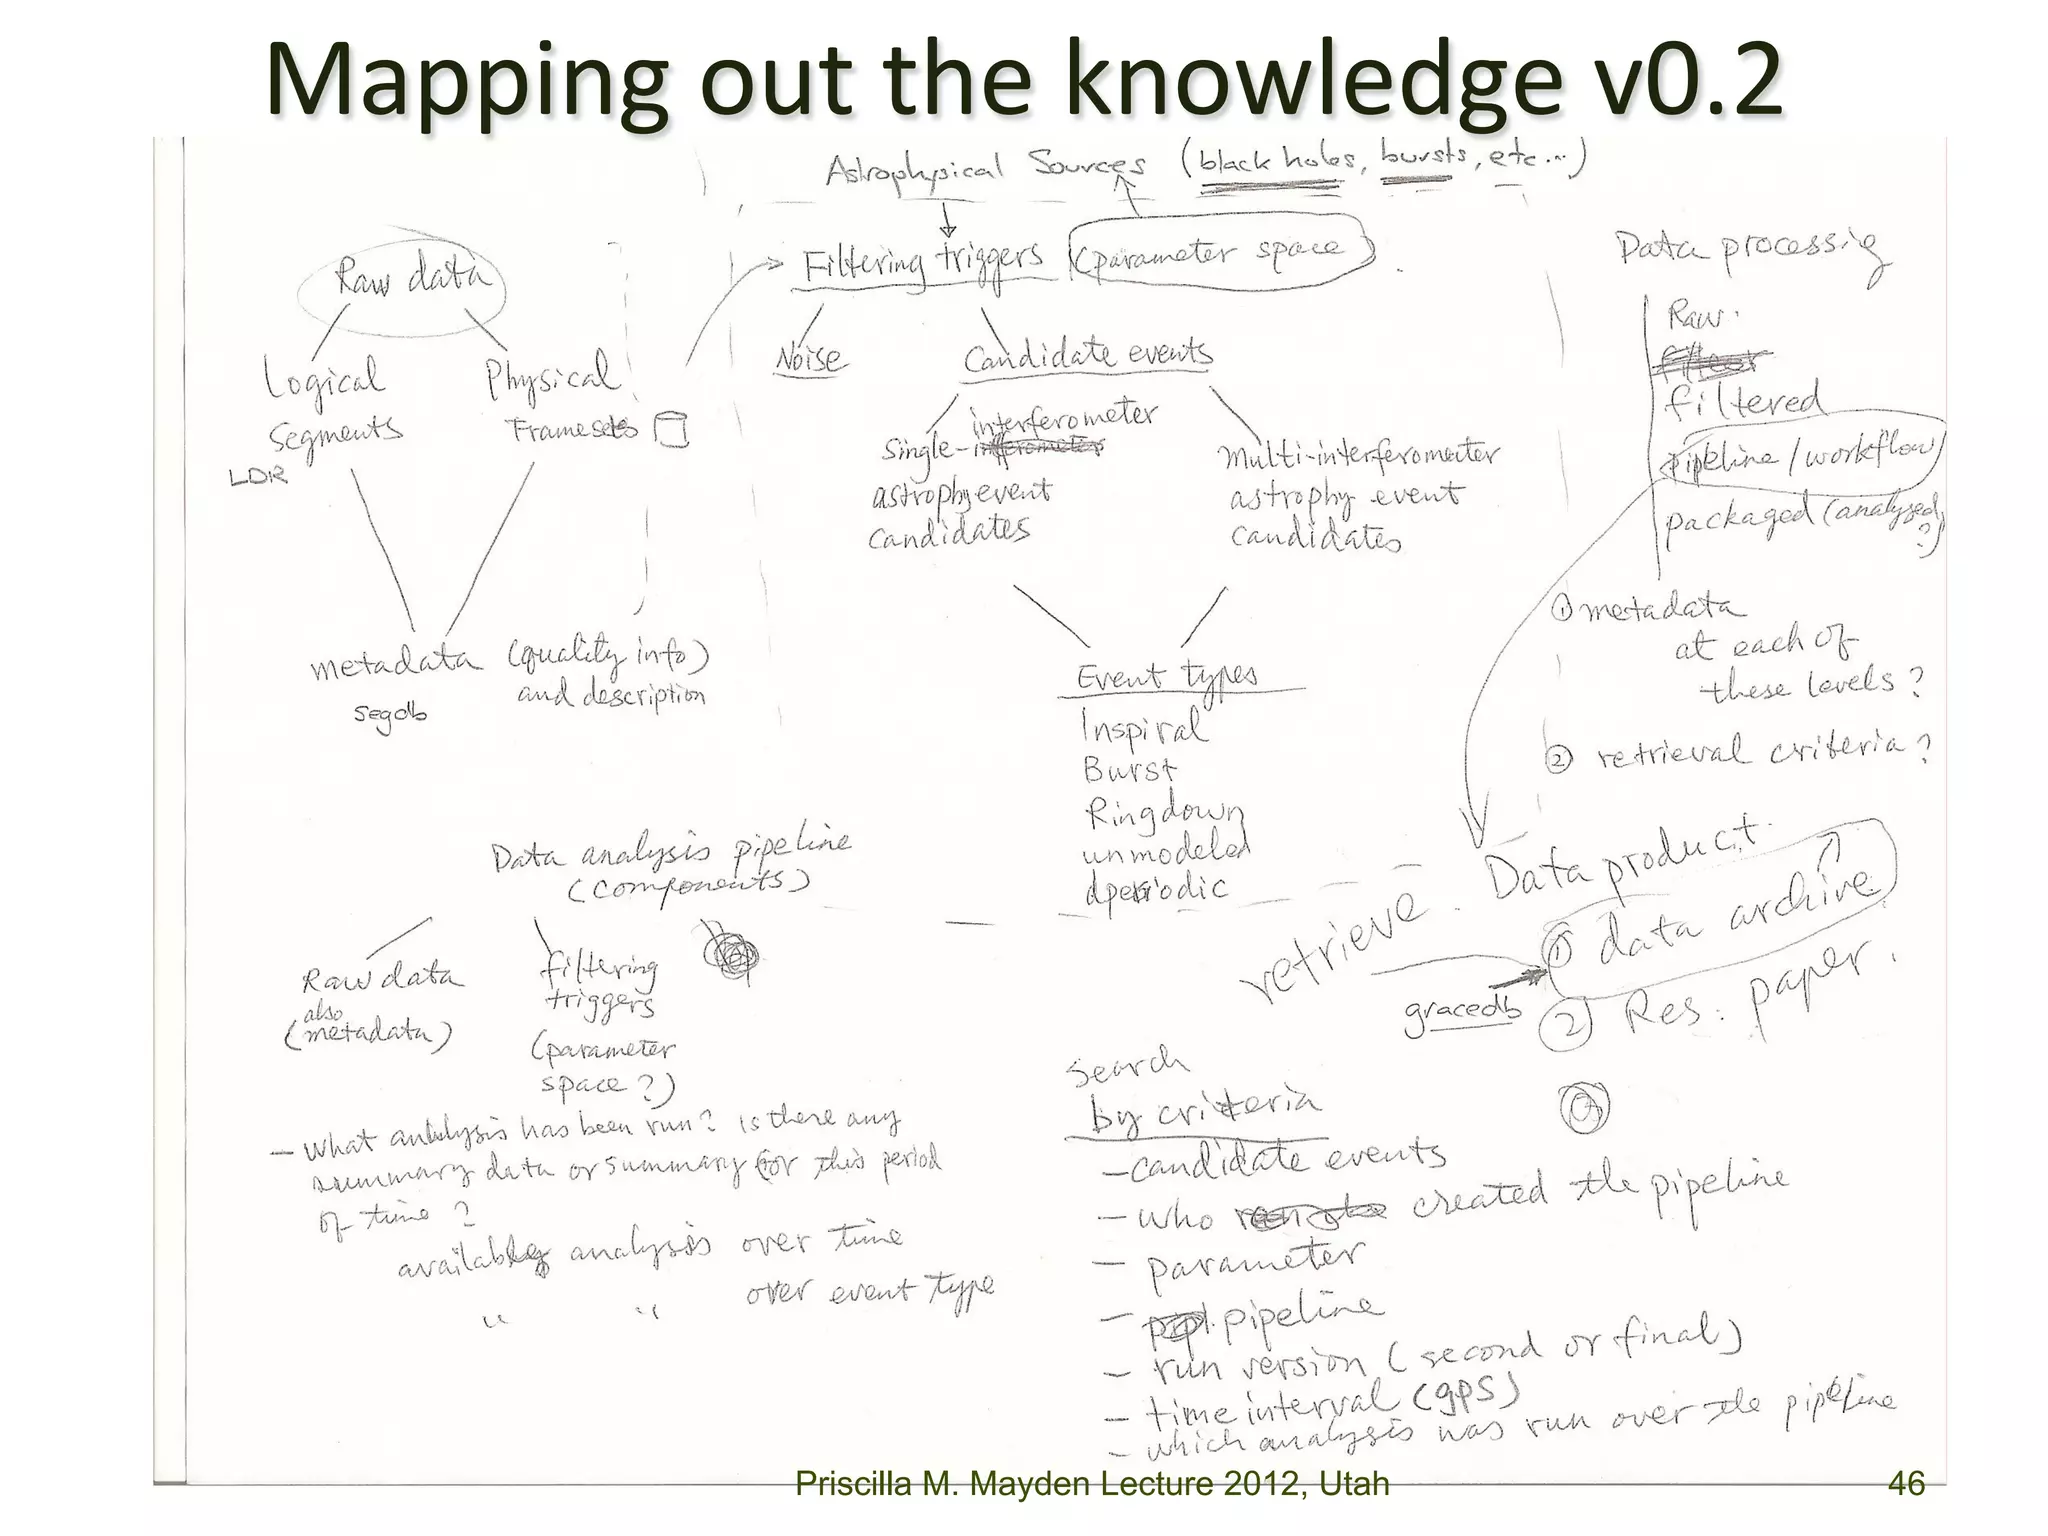 Mapping out the knowledge v0.2
Astrophysical Sources (black holes, bursts, etc...)
Raw data
Logical
Segments
LDR
Physical
Framesets
metadata (quality info)
and description
segdb
Filtering triggers (parameter space)
Noise
Candidate events
interferometer
Single-
astrophy event
candidates
Multi-interferometer
astrophy event
candidates
Event types
Inspiral
Burst
Ringdown
unmodeled
Data processing
Raw
filtered
pipeline / workflow
packaged (analyzed
?)
① metadata
at each of
these levels?
② retrieval criteria?
Data product
retrieve
① data archive
gracedb
② Res. paper.
Data analysis pipeline
(components)
Raw data
also
(metadata)
filtering
triggers
(parameter
space?)
- What analysis has been run? is there any
summary data or summary for this period
of time?
analysis over time
" " over event type
Search
by criteria
- candidate events
- who created the pipeline
- parameter
- pipeline
- run version (second or final)
- time interval (gps)
- which analysis was run over the pipeline
Priscilla M. Mayden Lecture 2012, Utah
46